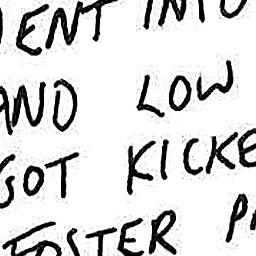 ENT INTO
AND LOW
GOT KICKE
FOSTER P